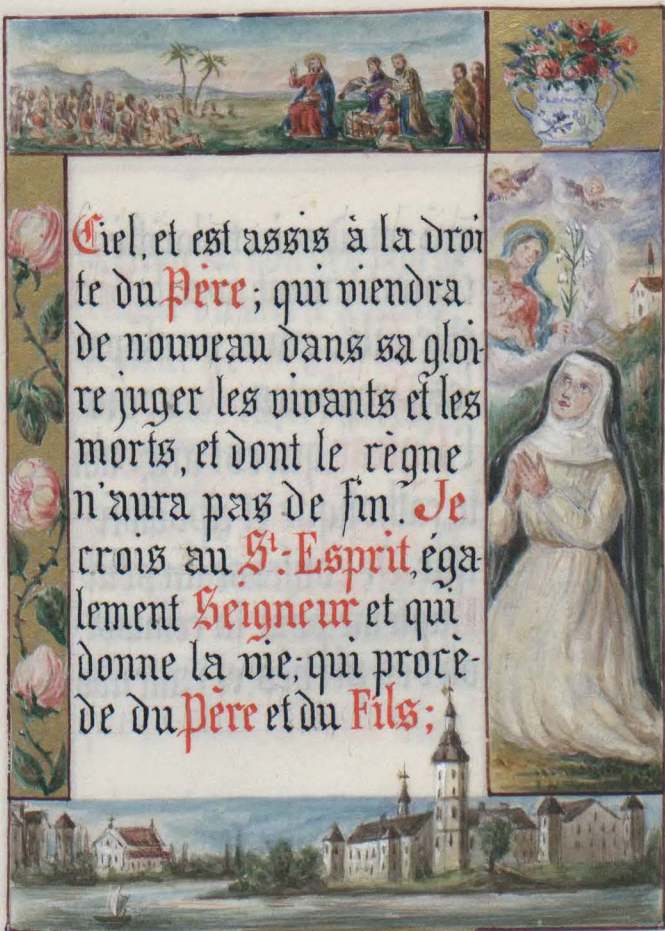 Ciel, et est assis à la droi
te du Père; qui viendra
de nouveau dans sa gloi-
re juger les vivants et les
morts, et dont le règne
n'aura pas de fin. Je
crois au St.-Esprit, éga-
lement Seigneur et qui
donne la vie; qui procè-
de du Père et du Fils;